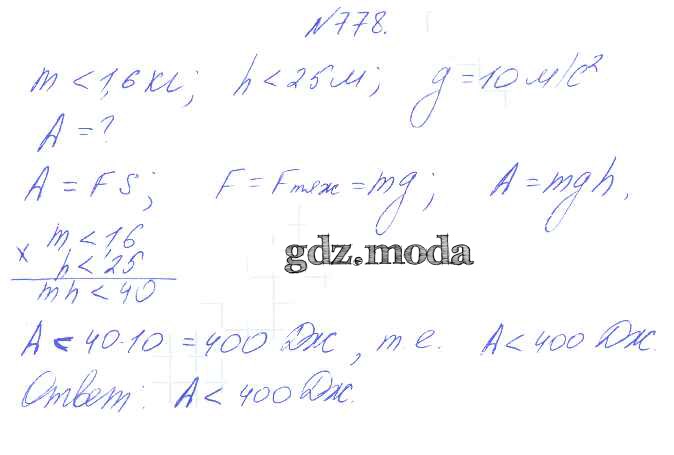 №778.
m < 1,6 кг; h < 25 м; g = 10 м/с²
A = ?
A = FS; F = Fтяж = mg; A = mgh.
× m < 1,6
h < 25
mh < 40
gdz.moda
A < 40·10 = 400 Дж, т е. A < 400 Дж.
Ответ: A < 400 Дж.